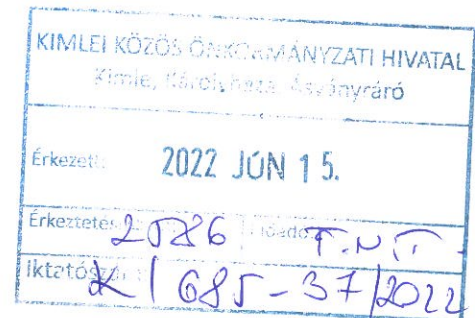 KIMLEI KÖZÖS ÖNKORMÁNYZATI HIVATAL
Kimle, Károlyháza, Ásványráró
Érkezett: 2022 JÚN 15.
Érkeztetés 2586
Iktatószám: K/685-37/2022